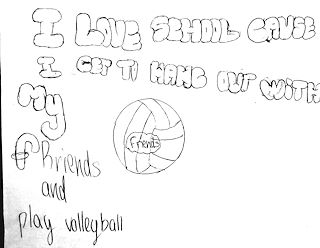 I LOVE SCHOOL CAUSE
I GET TO HANG OUT WITH
My
friends
friends
and
play volleyball